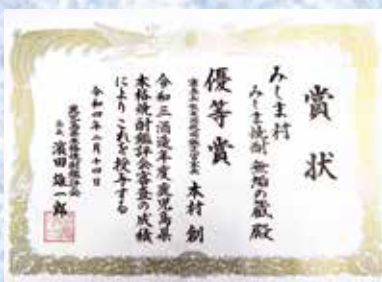 賞状
みしま村
みしま焼酎 無垢の蔵 殿
優等賞
木村 創
令和三酒造年度鹿児島県
本格焼酎鑑評会審査の成績
によりこれを授与する
令和四年二月十四日
鹿児島県本格焼酎鑑評会
会長 濵田雄一郎